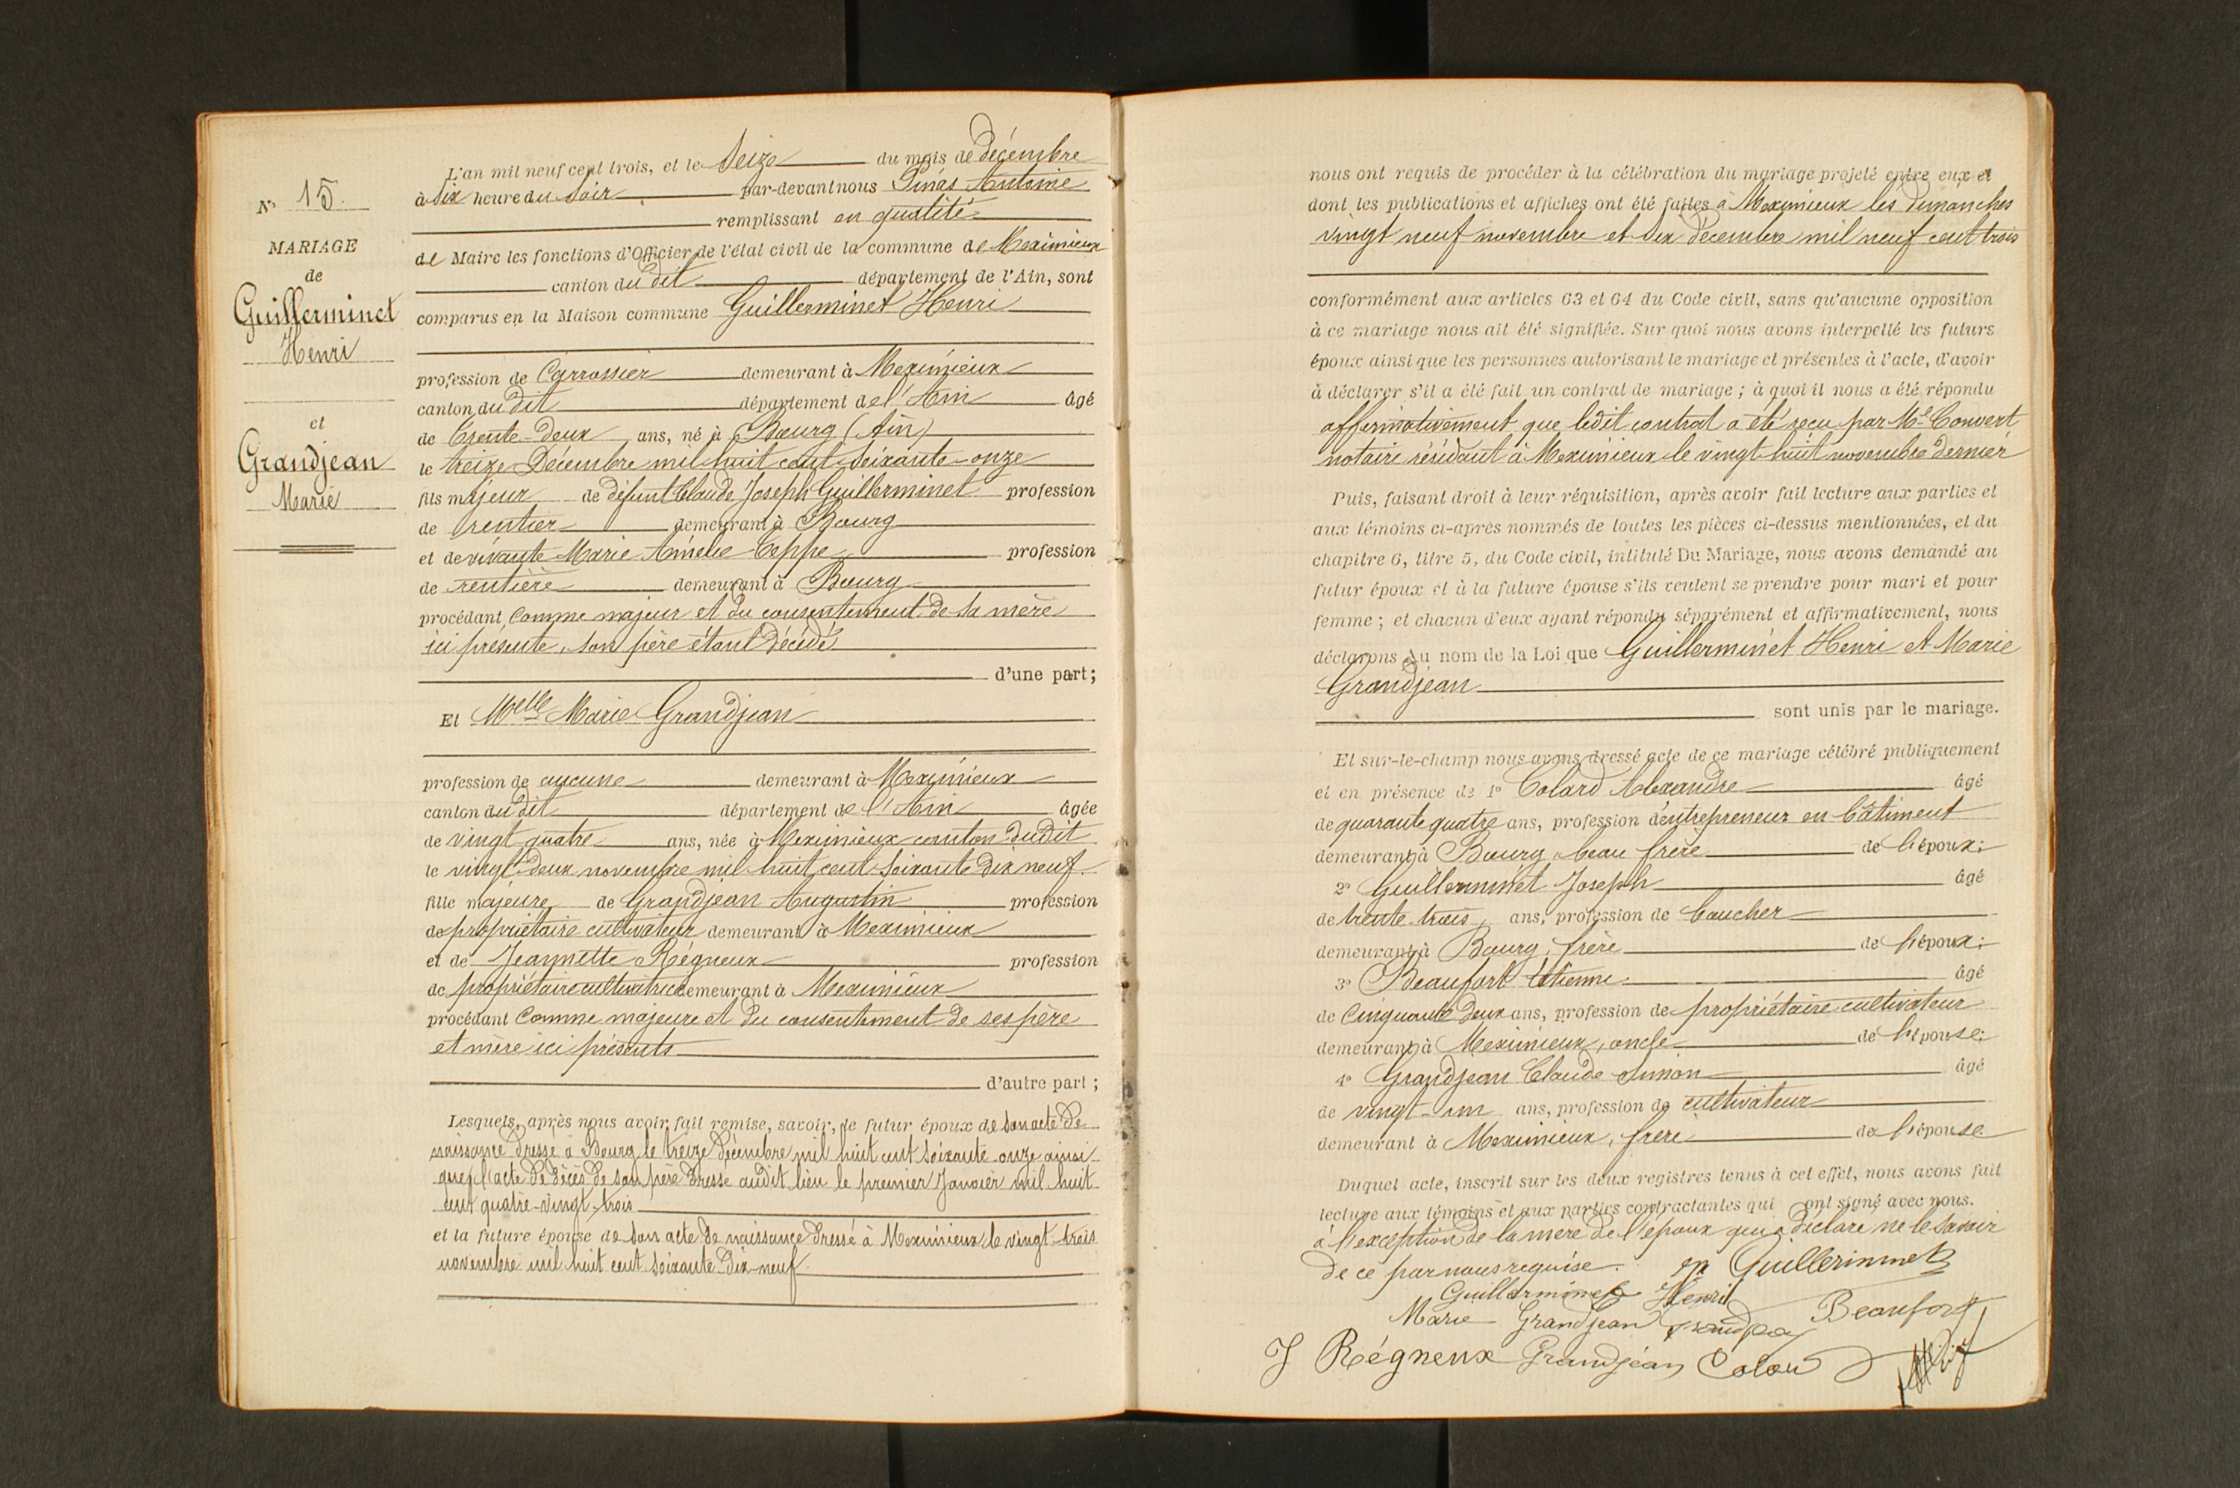 N° 15.
MARIAGE
de
Guillerminet
Henri
et
Grandjean
Marie
L'an mil neuf cent trois, et le Seize du mois de décembre
à Six heure du Soir par-devant nous Antoine
remplissant en qualité
de Maire les fonctions d'Officier de l'état civil de la commune de Meximieux
canton du dit département de l'Ain, sont
comparus en la Maison commune Guillerminet Henri
profession de Carrossier demeurant à Meximieux
canton du dit département de l'Ain âgé
de trente-deux ans, né à Bourg (Ain)
le treize Décembre mil huit cent soixante-onze
fils majeur de défunt Claude Joseph Guillerminet profession
de rentier demeurant à Bourg
et de vivante Marie Amélie Ceppe profession
de rentière demeurant à Bourg
procédant comme majeur et du consentement de sa mère
ici présente, son père étant décédé
d'une part;
Et Melle Marie Grandjean
profession de aucune demeurant à Meximieux
canton du dit département de l'Ain âgée
de vingt quatre ans, née à Meximieux canton dudit
le vingt-deux novembre mil huit cent soixante dix neuf.
fille majeure de Grandjean Augustin profession
de propriétaire cultivateur demeurant à Meximieux
et de Jeannette Régneux profession
de propriétaire cultivatrice demeurant à Meximieux
procédant comme majeure et du consentement de ses père
et mère ici présents
d'autre part;
Lesquels, après nous avoir fait remise, savoir, le futur époux de son acte de
naissance dressé à Bourg le treize décembre mil huit cent soixante-onze ainsi
que l'acte de décès de son père dressé audit lieu le premier Janvier mil huit
cent quatre-vingt-trois
et la future épouse de son acte de naissance dressé à Meximieux le vingt-trois
novembre mil huit cent soixante dix-neuf
nous ont requis de procéder à la célébration du mariage projeté entre eux et
dont les publications et affiches ont été faites à Meximieux les dimanches
vingt neuf novembre et six décembre mil neuf cent trois
conformément aux articles 63 et 64 du Code civil, sans qu'aucune opposition
à ce mariage nous ait été signifiée. Sur quoi nous avons interpellé les futurs
époux ainsi que les personnes autorisant le mariage et présentes à l'acte, d'avoir
à déclarer s'il a été fait un contrat de mariage; à quoi il nous a été répondu
affirmativement que ledit contrat a été reçu par Me Convert
notaire résidant à Meximieux le vingt-huit novembre dernier
Puis, faisant droit à leur réquisition, après avoir fait lecture aux parties et
aux témoins ci-après nommés de toutes les pièces ci-dessus mentionnées, et du
chapitre 6, titre 5, du Code civil, intitulé Du Mariage, nous avons demandé au
futur époux et à la future épouse s'ils veulent se prendre pour mari et pour
femme; et chacun d'eux ayant répondu séparément et affirmativement, nous
déclarons au nom de la Loi que Guillerminet Henri et Marie
Grandjean
sont unis par le mariage.
Et sur-le-champ nous avons dressé acte de ce mariage célébré publiquement
et en présence de 1° Colard Alexandre âgé
de quarante quatre ans, profession d'entrepreneur en bâtiment
demeurant à Bourg, beau frère de l'époux;
2° Guillerminet Joseph âgé
de trente-trois ans, profession de boucher
demeurant à Bourg, frère de l'époux;
3° Beaufort Etienne âgé
de Cinquante deux ans, profession de propriétaire cultivateur
demeurant à Meximieux, oncle de l'épouse;
4° Grandjean Claude Simon âgé
de vingt-un ans, profession de cultivateur
demeurant à Meximieux, frère de l'épouse
Duquel acte, inscrit sur les deux registres tenus à cet effet, nous avons fait
lecture aux témoins et aux parties contractantes qui ont signé avec nous.
à l'exception de la mère de l'époux qui a déclaré ne le savoir
de ce par nous requise. Guillerminet
Guillerminet Henri
Marie Grandjean Beaufort
J Régneux Grandjean